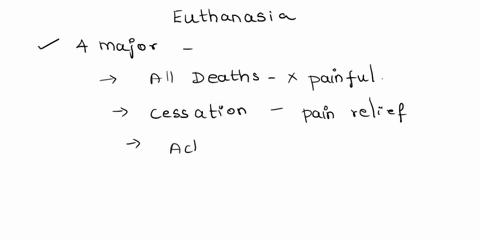 Euthanasia
✓ 4 major -
→ All Deaths - x painful.
→ cessation - pain relief
→ Acl